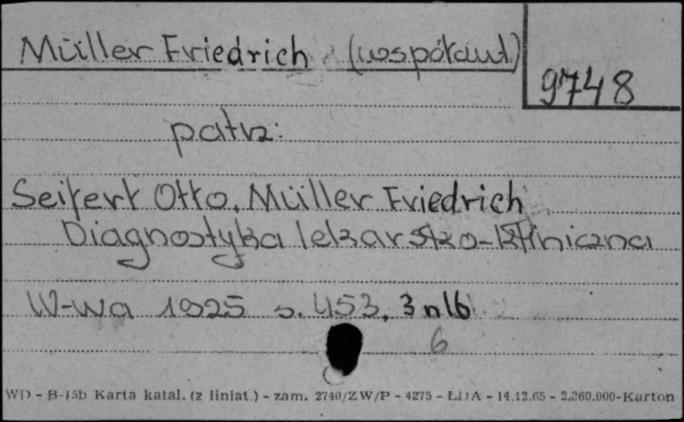 Müller Friedrich (współaut)
9748
patrz:
Seifert Otto, Müller Friedrich
Diagnostyka lekarsko-kliniczna
W-wa 1925 s. 453, 3 nlb
6
WD - B-15b Karta katal. (z liniat.) - zam. 2740/ZW/P - 4275 - ŁDA - 14.12.65 - 2.360.000-Karton